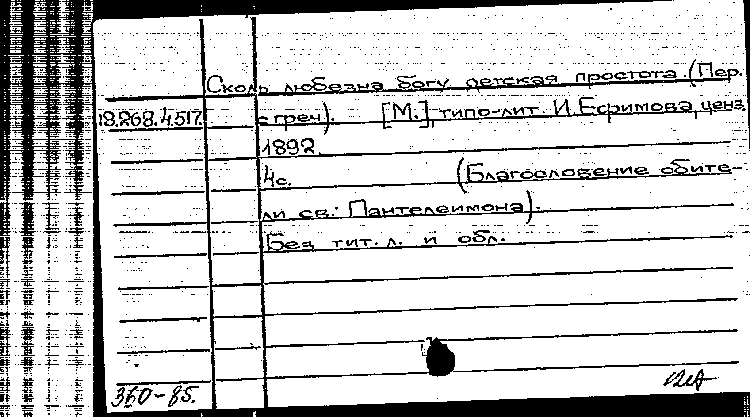 Сколь любезна богу детская простота. (Пер.
18.268.4.517. с греч). [М.], типо-лит. И. Ефимова, ценз.
1892.
4с. (Благословение обите-
ли св. Пантелеимона).
Без тит. л. и обл.
360-85.